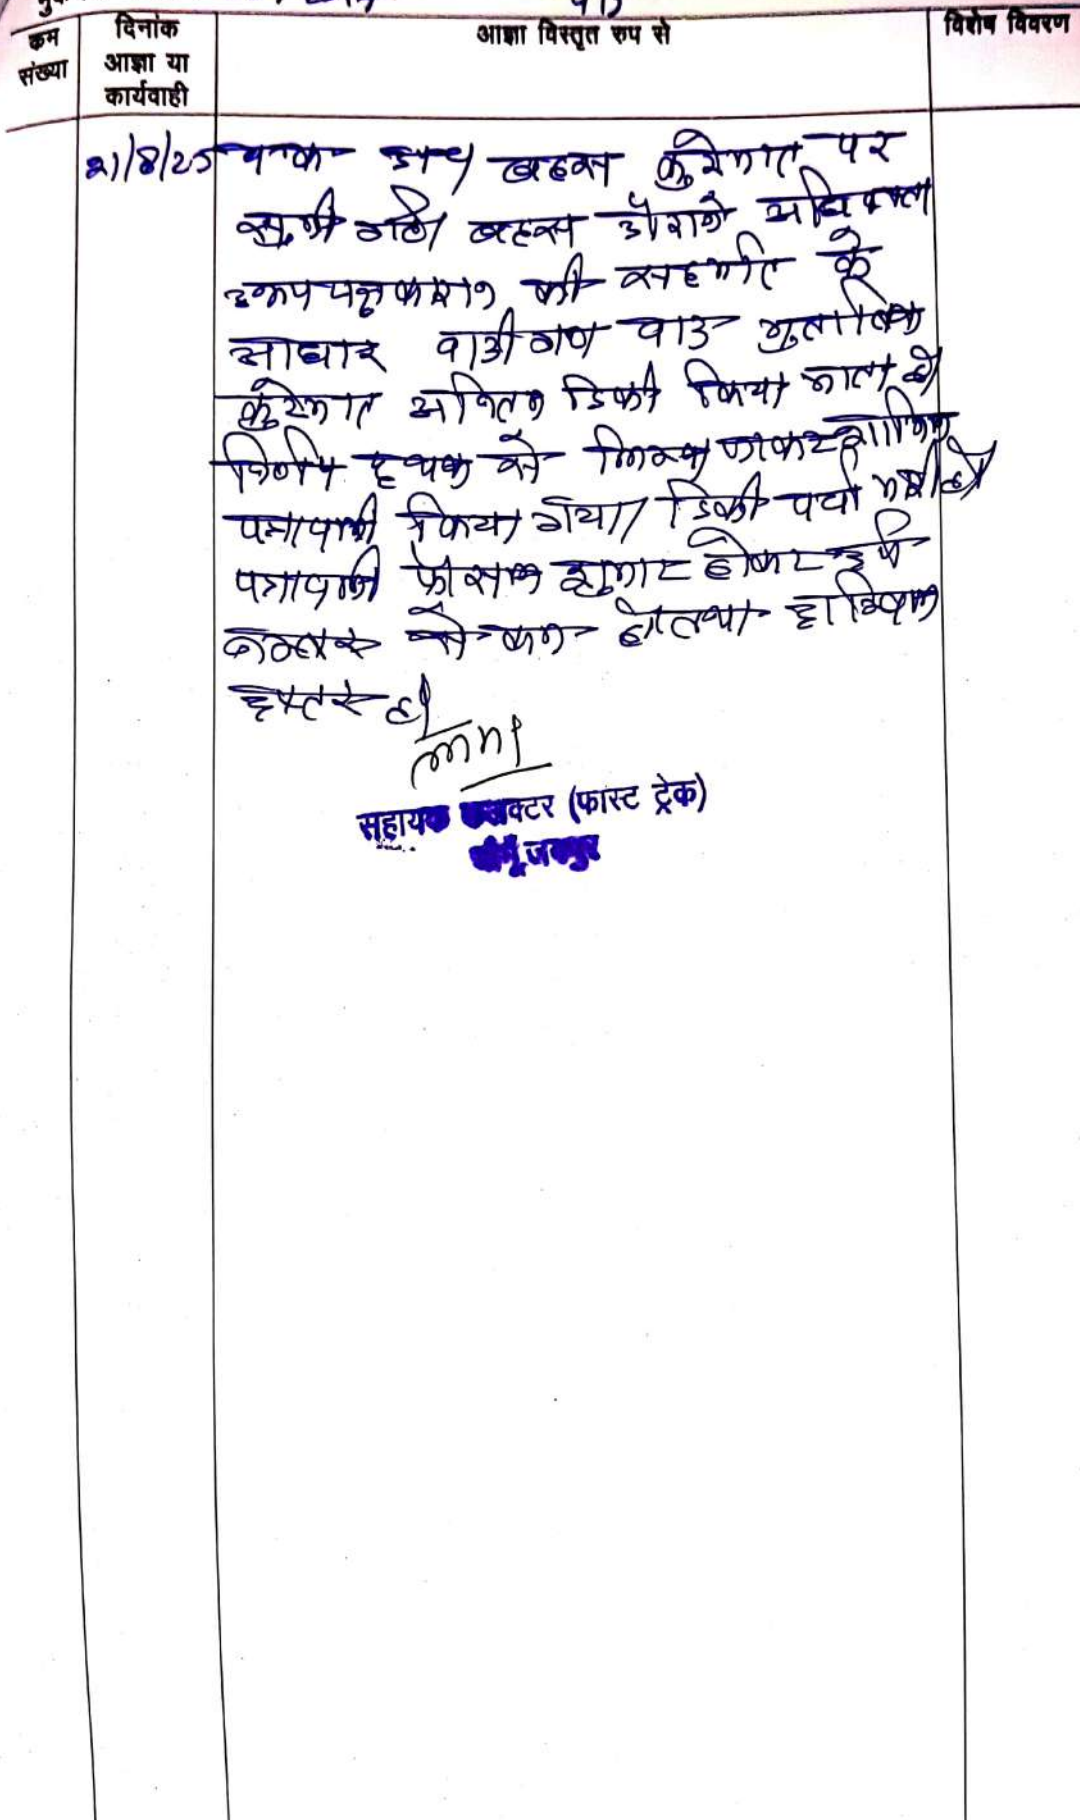 क्रम संख्या
दिनांक आज्ञा या कार्यवाही
आज्ञा विस्तृत रुप से
विशेष विवरण
21/8/25 बहस कुरेजात पर
सुनी गयी बहस दौराने अधिवक्ता
उभयपक्षकारान की सहमति के
आधार वादीगण वाद मुताबिक
कुरेजात अन्तिम डिक्री किया जाता है
निर्णय पृथक से लिखा जाकर शामिल
पत्रावली किया गया। डिक्री पर्चा जारी हो
पत्रावली फैसल शुमार होकर दर्ज
नम्बर से कम हो तथा दाखिल
दफ्तर हो
सहायक कलक्टर (फास्ट ट्रेक)
चौमूं, जयपुर